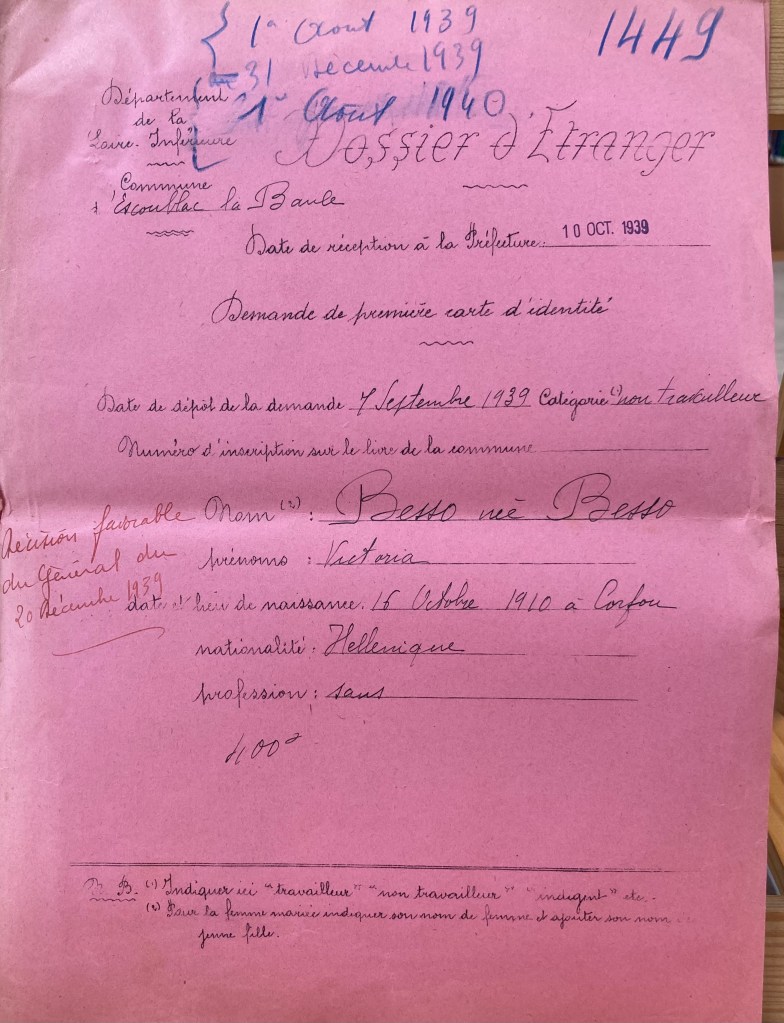 1er Aout 1939
1449
31 Décembre 1939
1er Aout 1940
Département
de la
Loire-Inférieure
Dossier d'Etranger
Commune
d'Escoublac la Baule
Date de réception à la Préfecture: 10 OCT. 1939
Demande de première carte d'identité
Date de dépôt de la demande 7 Septembre 1939 Catégorie (1) non travailleur
Numéro d'inscription sur le livre de la commune
Nom (2) : Besso née Besso
Décision favorable
du Général du
20 Décembre 1939
prénoms : Victoria
date et lieu de naissance. 16 Octobre 1910 à Corfou
nationalité : Hellenique
profession : sans
400
N. B. (1) Indiquer ici "travailleur" "non travailleur" "indigent" etc.
(2) Pour la femme mariée indiquer son nom de femme et ajouter son nom de
jeune fille.